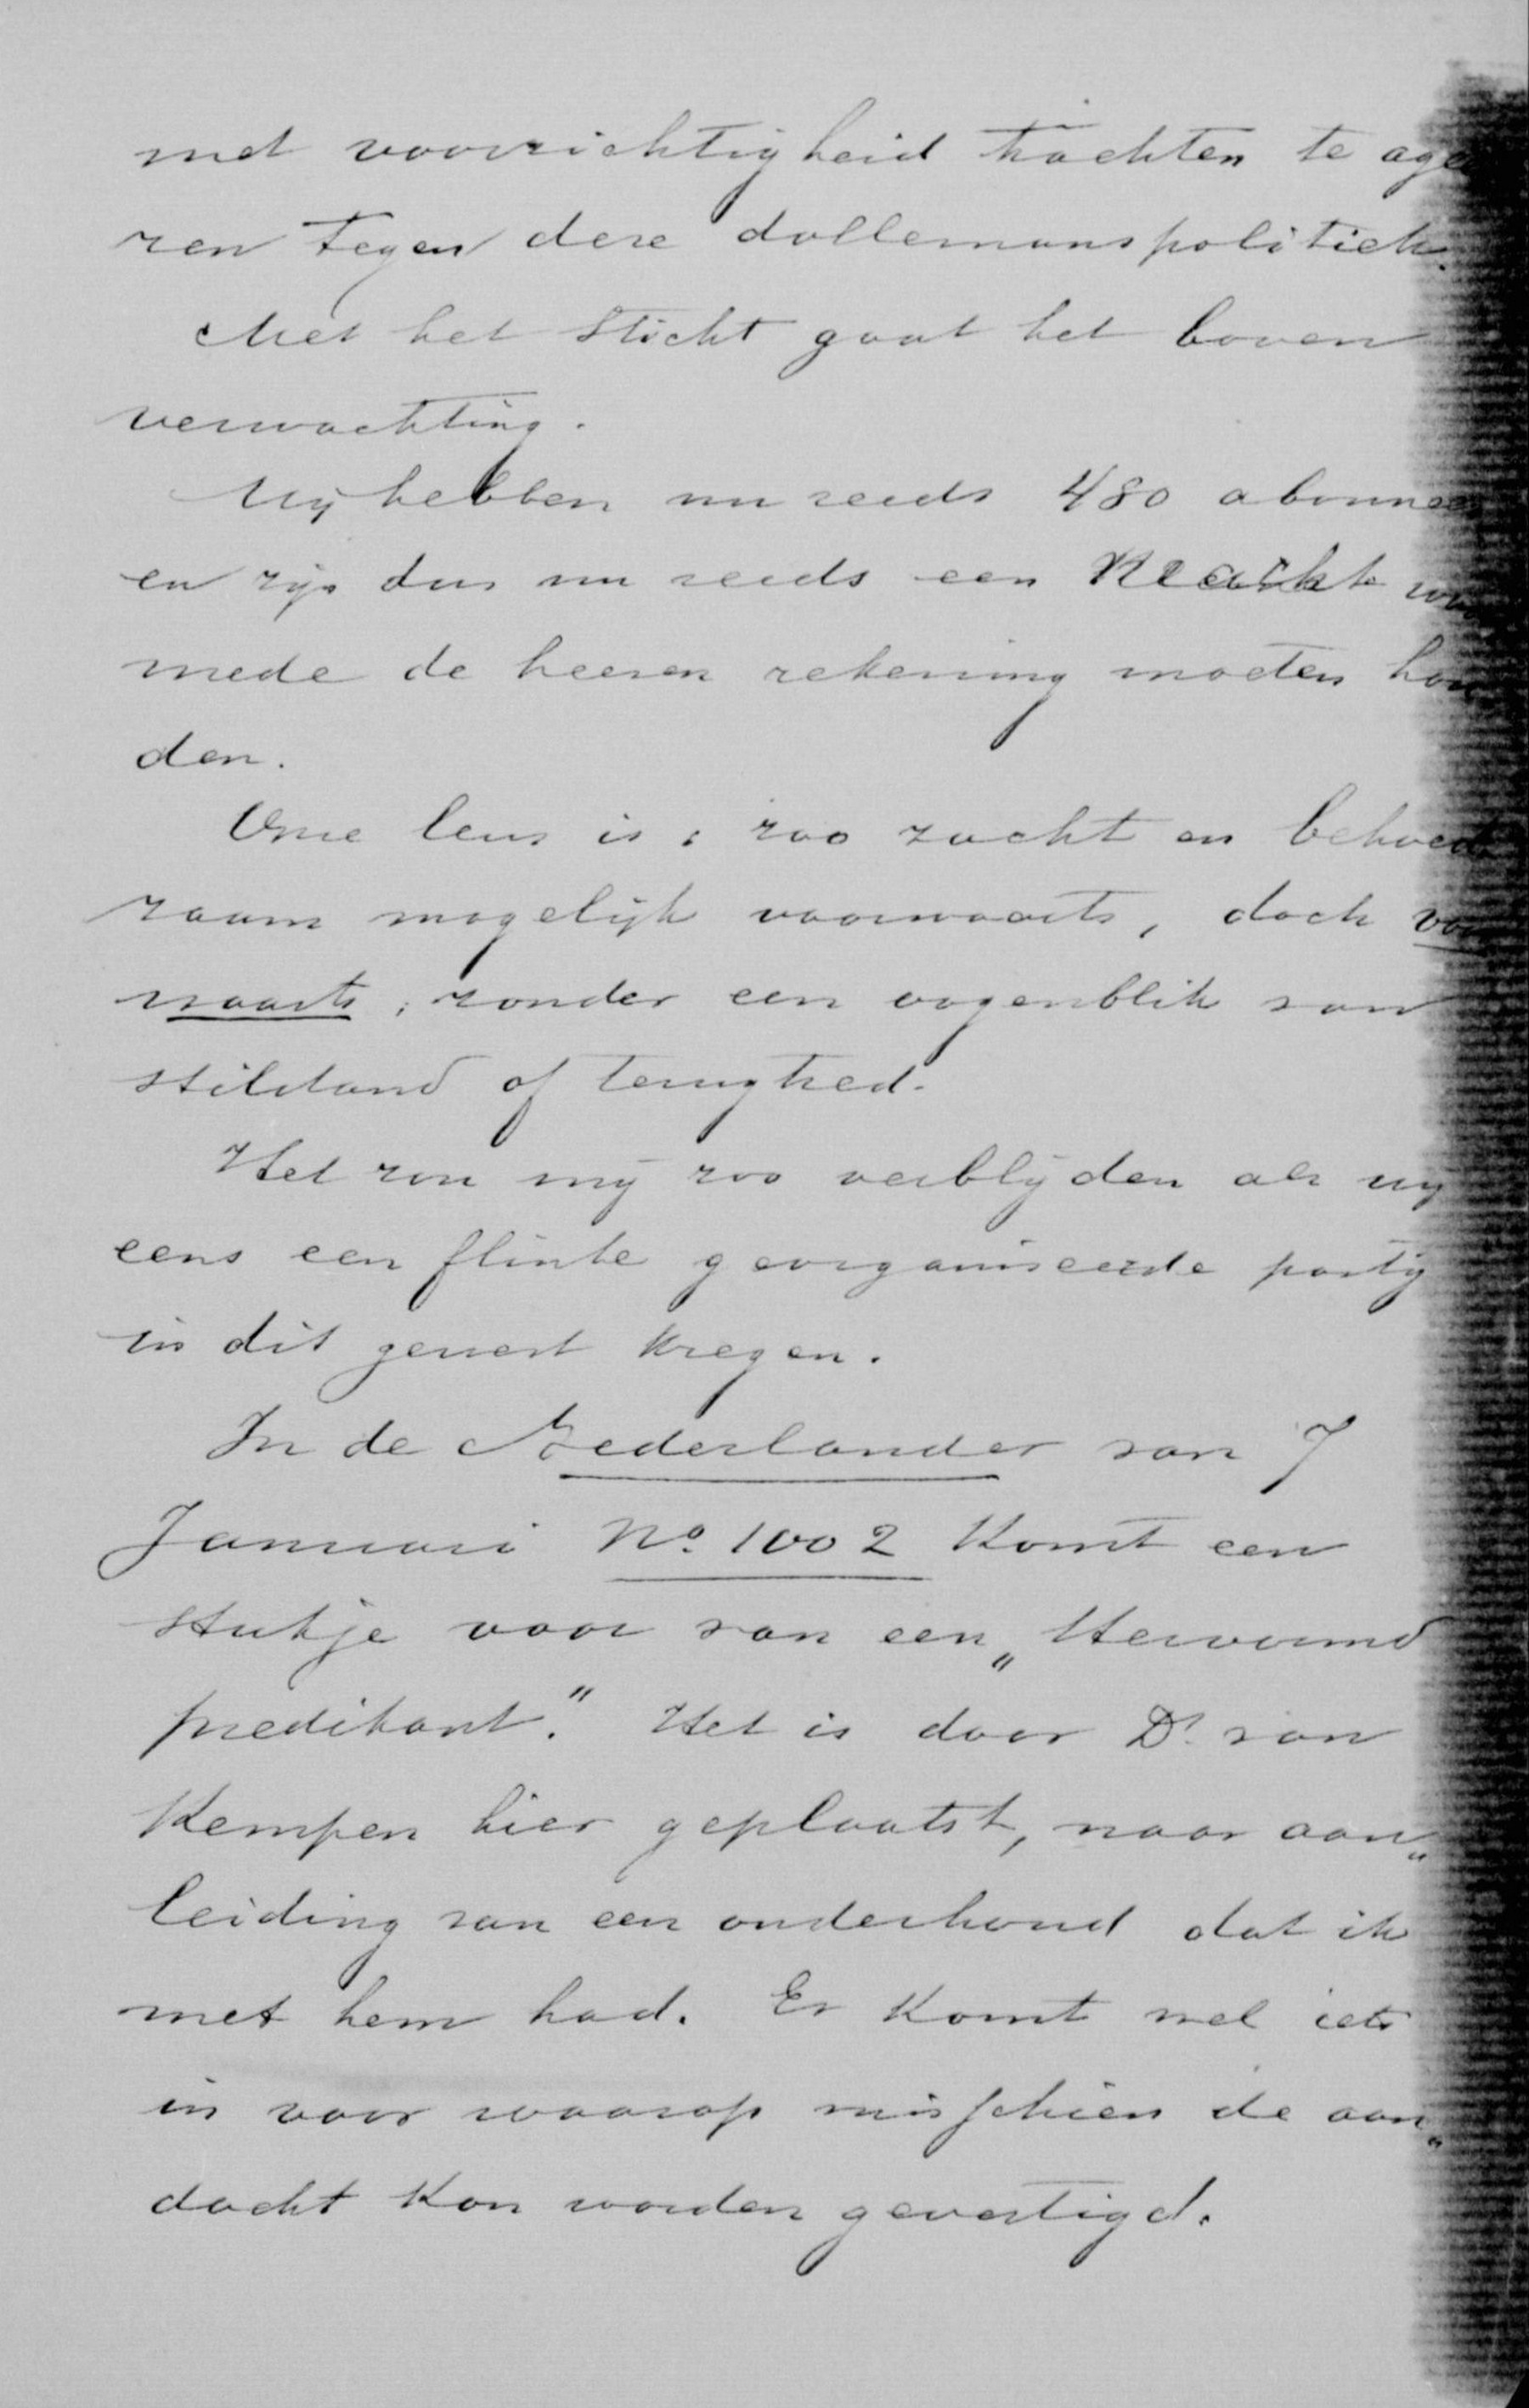 met voorzichtigheid trachten te age
ren tegen deze dollemanspolitiek.
Met het Sticht gaat het boven
verwachting.
Wij hebben nu reeds 480 abonnees
en zijn dus nu reeds een Macht
mede de heeren rekening moeten hou
den.
Onze leus is: zoo zacht en behoed
zaam mogelijk voorwaarts, doch voor
waarts, zonder een oogenblik van
stilstand of terugtred.
Het zou mij zoo verblijden als wij
eens een flinke georganiseerde partij
in dit gewest kregen.
In de Nederlander van 7
Januari No. 1002 komt een
stukje voor van een „Hervormd
predikant." Het is door Ds. van
Kempen hier geplaatst, naar aan„
leiding van een onderhoud dat ik
met hem had. Er komt wel iets
in voor waarop misschien de aan„
dacht kon worden gevestigd.